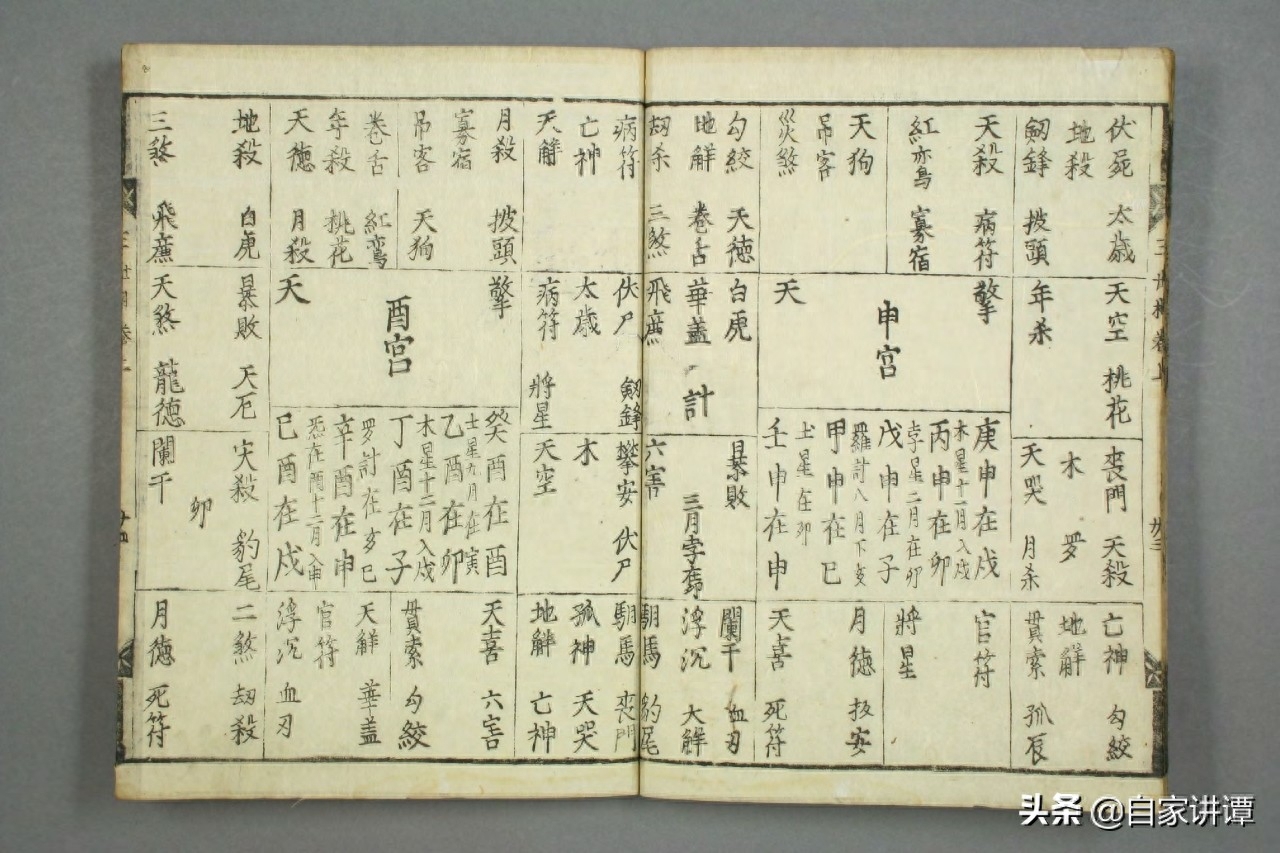 伏屍 太歲
地殺
劔鋒 披頭
天殺 病符
紅鸞 寡宿
天狗
吊客
災煞
勾絞 天德
地解 卷舌
劫杀 三煞
天空 桃花
年杀
擎
申宮
天
白虎
華蓋
飛廉
計
庚申在戍
木星十二月入戍
丙申在卯
孛星二月在卯
戊申在子
羅計八月下亥
甲申在巳
土星在卯
壬申在申
喪門 天殺
木 罗
天哭 月杀
暴敗
三月孛
六害
亡神 勾絞
地解
貫索 孤辰
官符
將星
月德 扳安
天喜 死符
闌干 血刃
浮沉 大解
馹馬 豹尾
病符
亡神
天解
月殺 披頭
寡宿
吊客 天狗
卷舌 紅鸞
年殺 桃花
天德 月殺
地殺 白虎
三煞 飛廉
伏尸 劔鋒
太歲
病符 將星
擎
酉宮
天
暴敗 天厄
天煞 龍德
攀安 伏尸
木
天空
癸酉在酉
土星九月在寅
乙酉在卯
木星十二月入戍
丁酉在子
罗計在亥巳
辛酉在申
炁在酉十二月入申
己酉在戍
灾殺 豹尾
卯
闌干
馹馬 喪門
孤神 天哭
地解 亡神
天喜 六害
貫索 勾絞
天解 華蓋
官符
浮沉 血刃
二煞 刧殺
月德 死符
头条 @自家讲谭